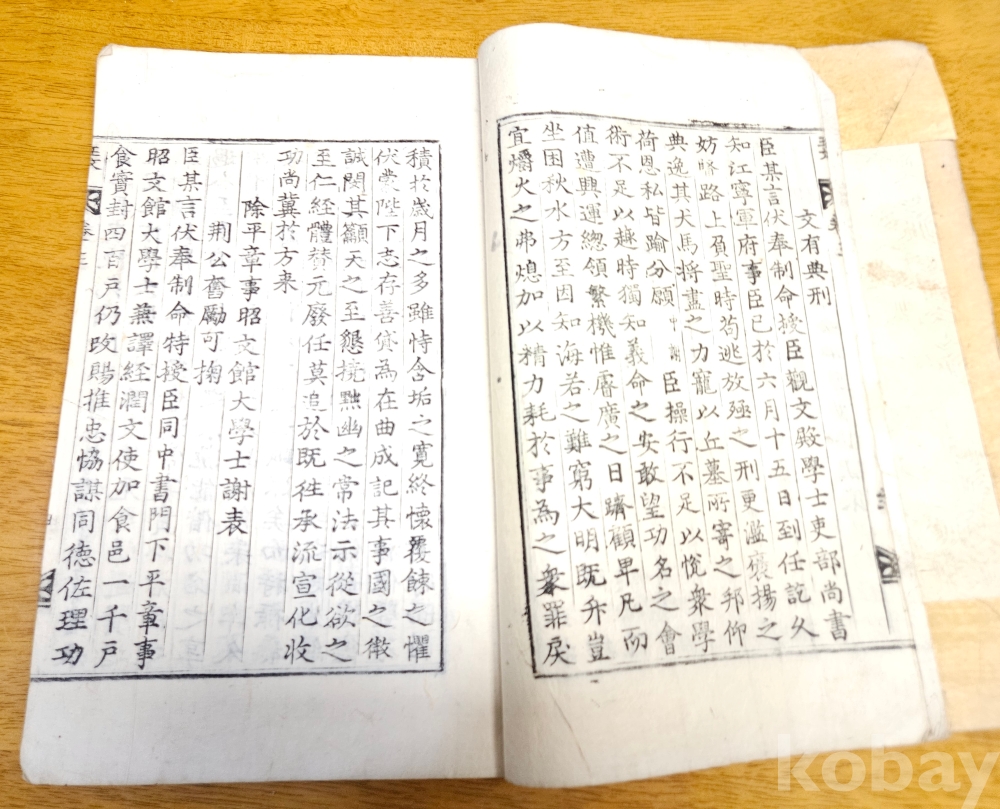 文有典刑
臣某言伏奉制命授臣觀文殿學士吏部尚書
知江寧軍府事臣已於六月十五日到任訖久
妨賢路上負聖時苟逃放殛之刑更濫褒揚之
典逸其犬馬將盡之力寵以丘墓所寄之邦仰
荷恩私皆踰分願 謝 臣操行不足以悅衆學
術不足以趍時獨知義命之安敢望功名之會
值遭興運總領繁機惟睿廣之日躋顧卑凡而
坐困秋水方至因知海若之難窮大明既升豈
宜爝火之弗熄加以精力耗於事為之衆罪戾
積扵歲月之多雖恃含垢之寬終懷覆餗之懼
伏蒙陛下志存善貸為在曲成記其事國之微
誠閔其籲天之至懇撓黜幽之常法示從欲之
至仁經體賛元廢任莫追於既往承流宣化收
功尚冀於方来
除平章事昭文館大學士謝表
荆公奮勵可掬
臣某言伏奉制命特授臣同中書門下平章事
昭文館大學士兼譯經潤文使加食邑一千戶
食實封四百戶仍改賜推忠協謀同德佐理功
kobay